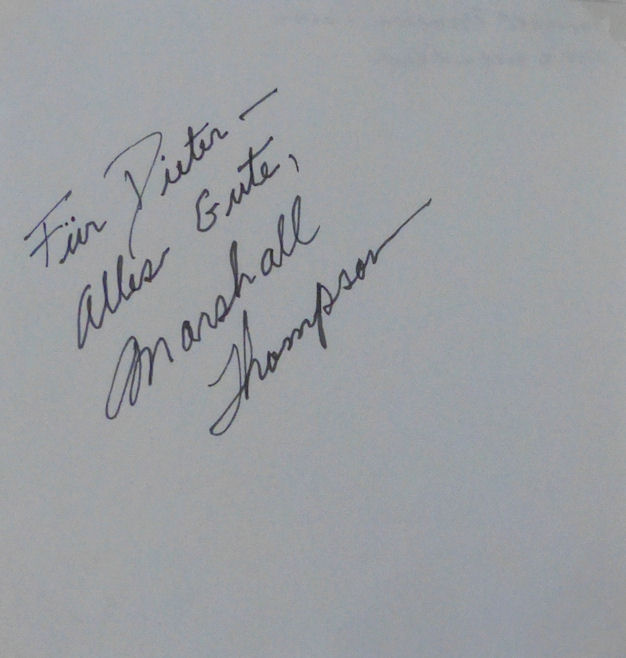 Für Dieter —
Alles Gute,
Marshall
Thompson